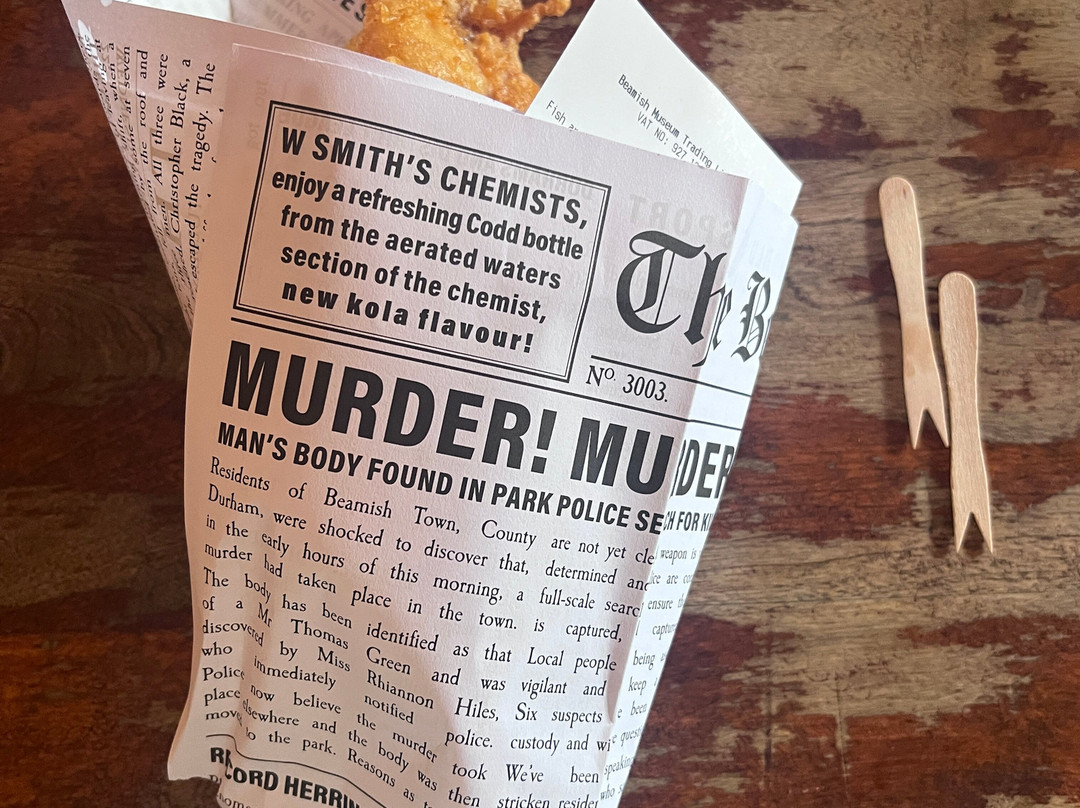 W SMITH'S CHEMISTS,
enjoy a refreshing Codd bottle
from the aerated waters
section of the chemist,
new kola flavour!
The B
No. 3003.
MURDER! MURDER
MAN'S BODY FOUND IN PARK POLICE SE CH FOR KI
Residents of Beamish Town, County
Durham, were shocked to discover that,
in the early hours of this morning, a
murder had taken place in the town.
The body has been identified as that
of a Mr Thomas Green and was
discovered by Miss Rhiannon Hiles,
who immediately notified police.
Police now believe the murder took
place elsewhere and the body was then
moved to the park. Reasons as
are not yet cle
determined and
full-scale searc
is captured,
Local people
vigilant and
Six suspects
custody and wi
We've been
stricken
weapon is
ensure
being
keep
been
CORD HERRIN
seven
the roof and
All three were
Christopher Black, a
escaped the tragedy. The
Beamish Museum Trading
VAT NO: 927
Fish
SPORT